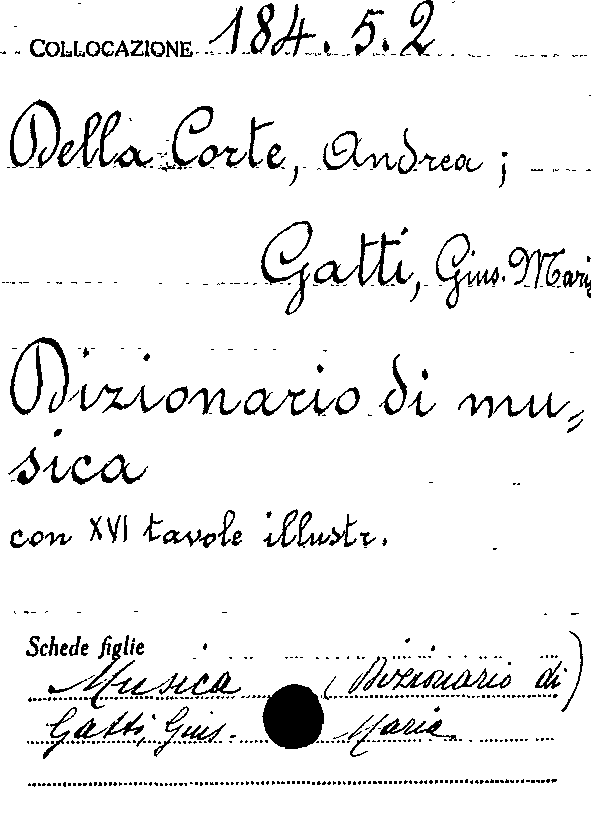 COLLOCAZIONE 184.5.2
Della Corte, Andrea ;
Gatti, Gius. Maria
Dizionario di mu=
sica
con XVI tavole illustr.
Schede figlie
Musica (Dizionario di)
Gatti, Gius. Maria